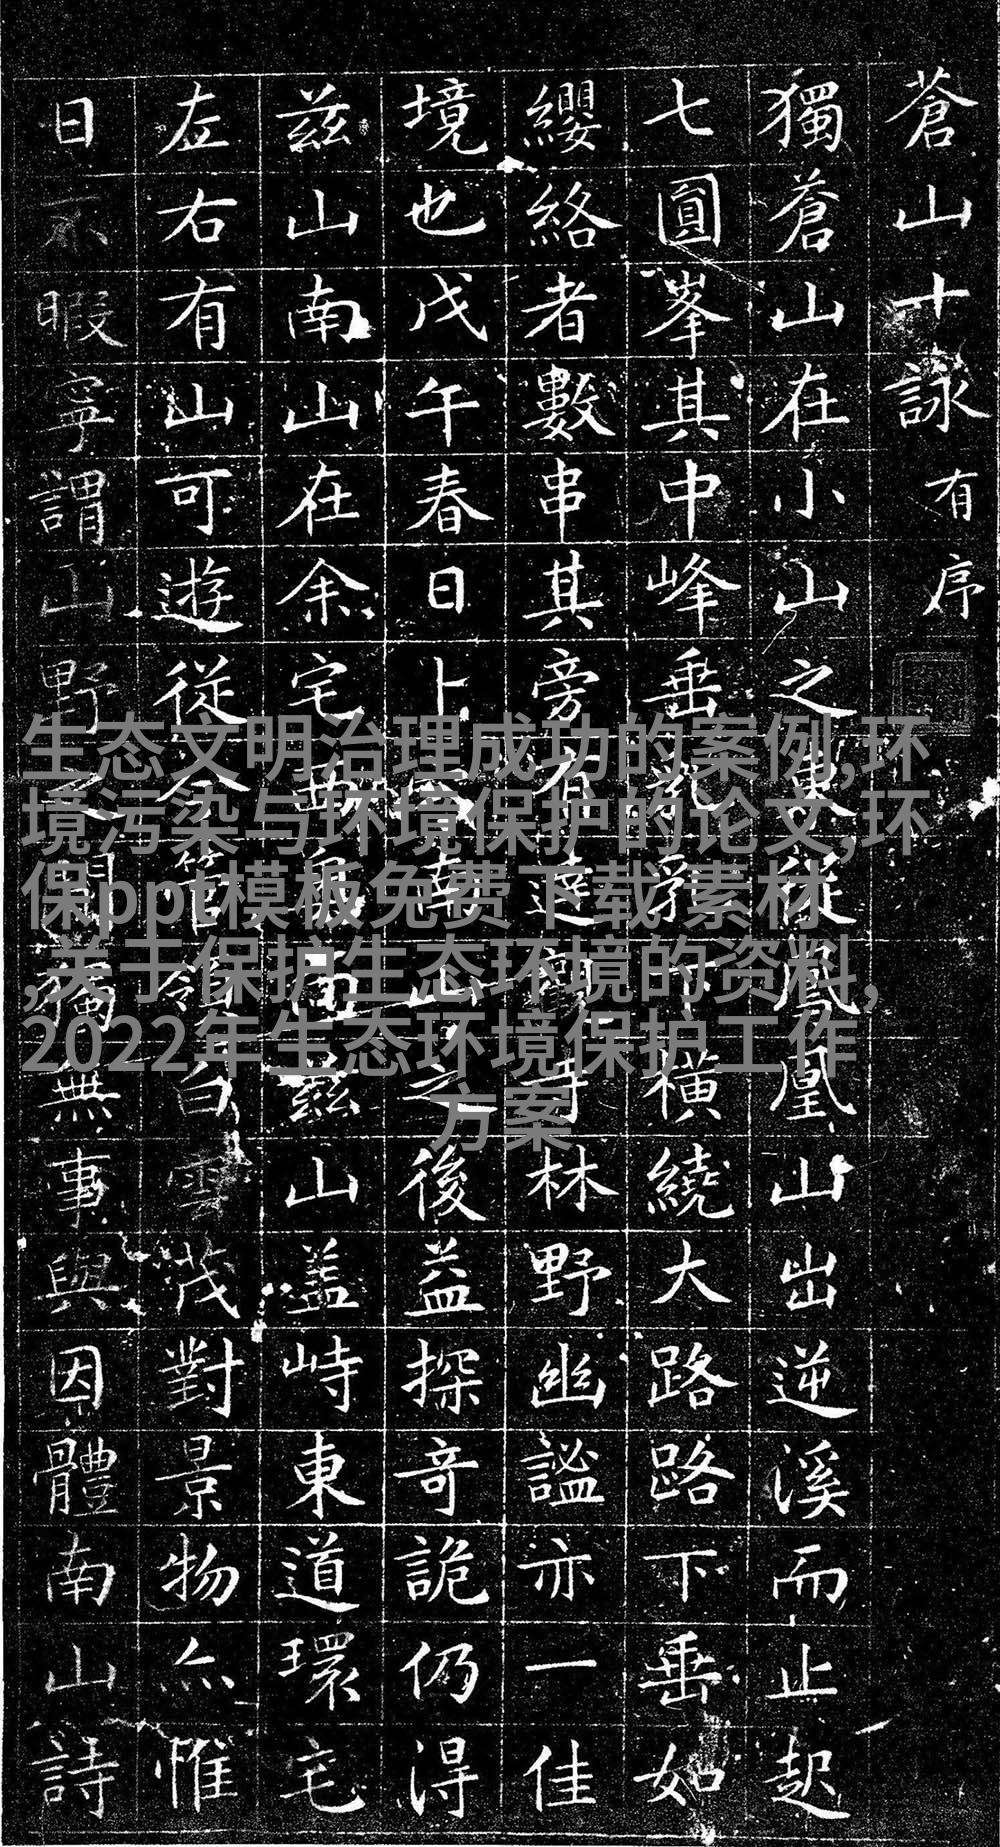 蒼山十詠 有序
獨蒼山在小山之東從鳳凰山出逆溪而止起
七圓峯其中峰垂乳下橫繞大路路下垂如
纓絡者數串其旁有遠寺林野幽謐亦一佳
境也戊午春日上南山之後益探奇詭仍得
兹山南山在余宅兹山盖峙東道環宅
左右有山可遊從領白雲茂對景物亦惟
日不暇寧謂山野之間獨無事與因體南山詩
生态文明治理成功的案例,环
境污染与环境保护的论文,环
保ppt模板免费下载素材
,关于保护生态环境的资料,
2022年生态环境保护工作
方案